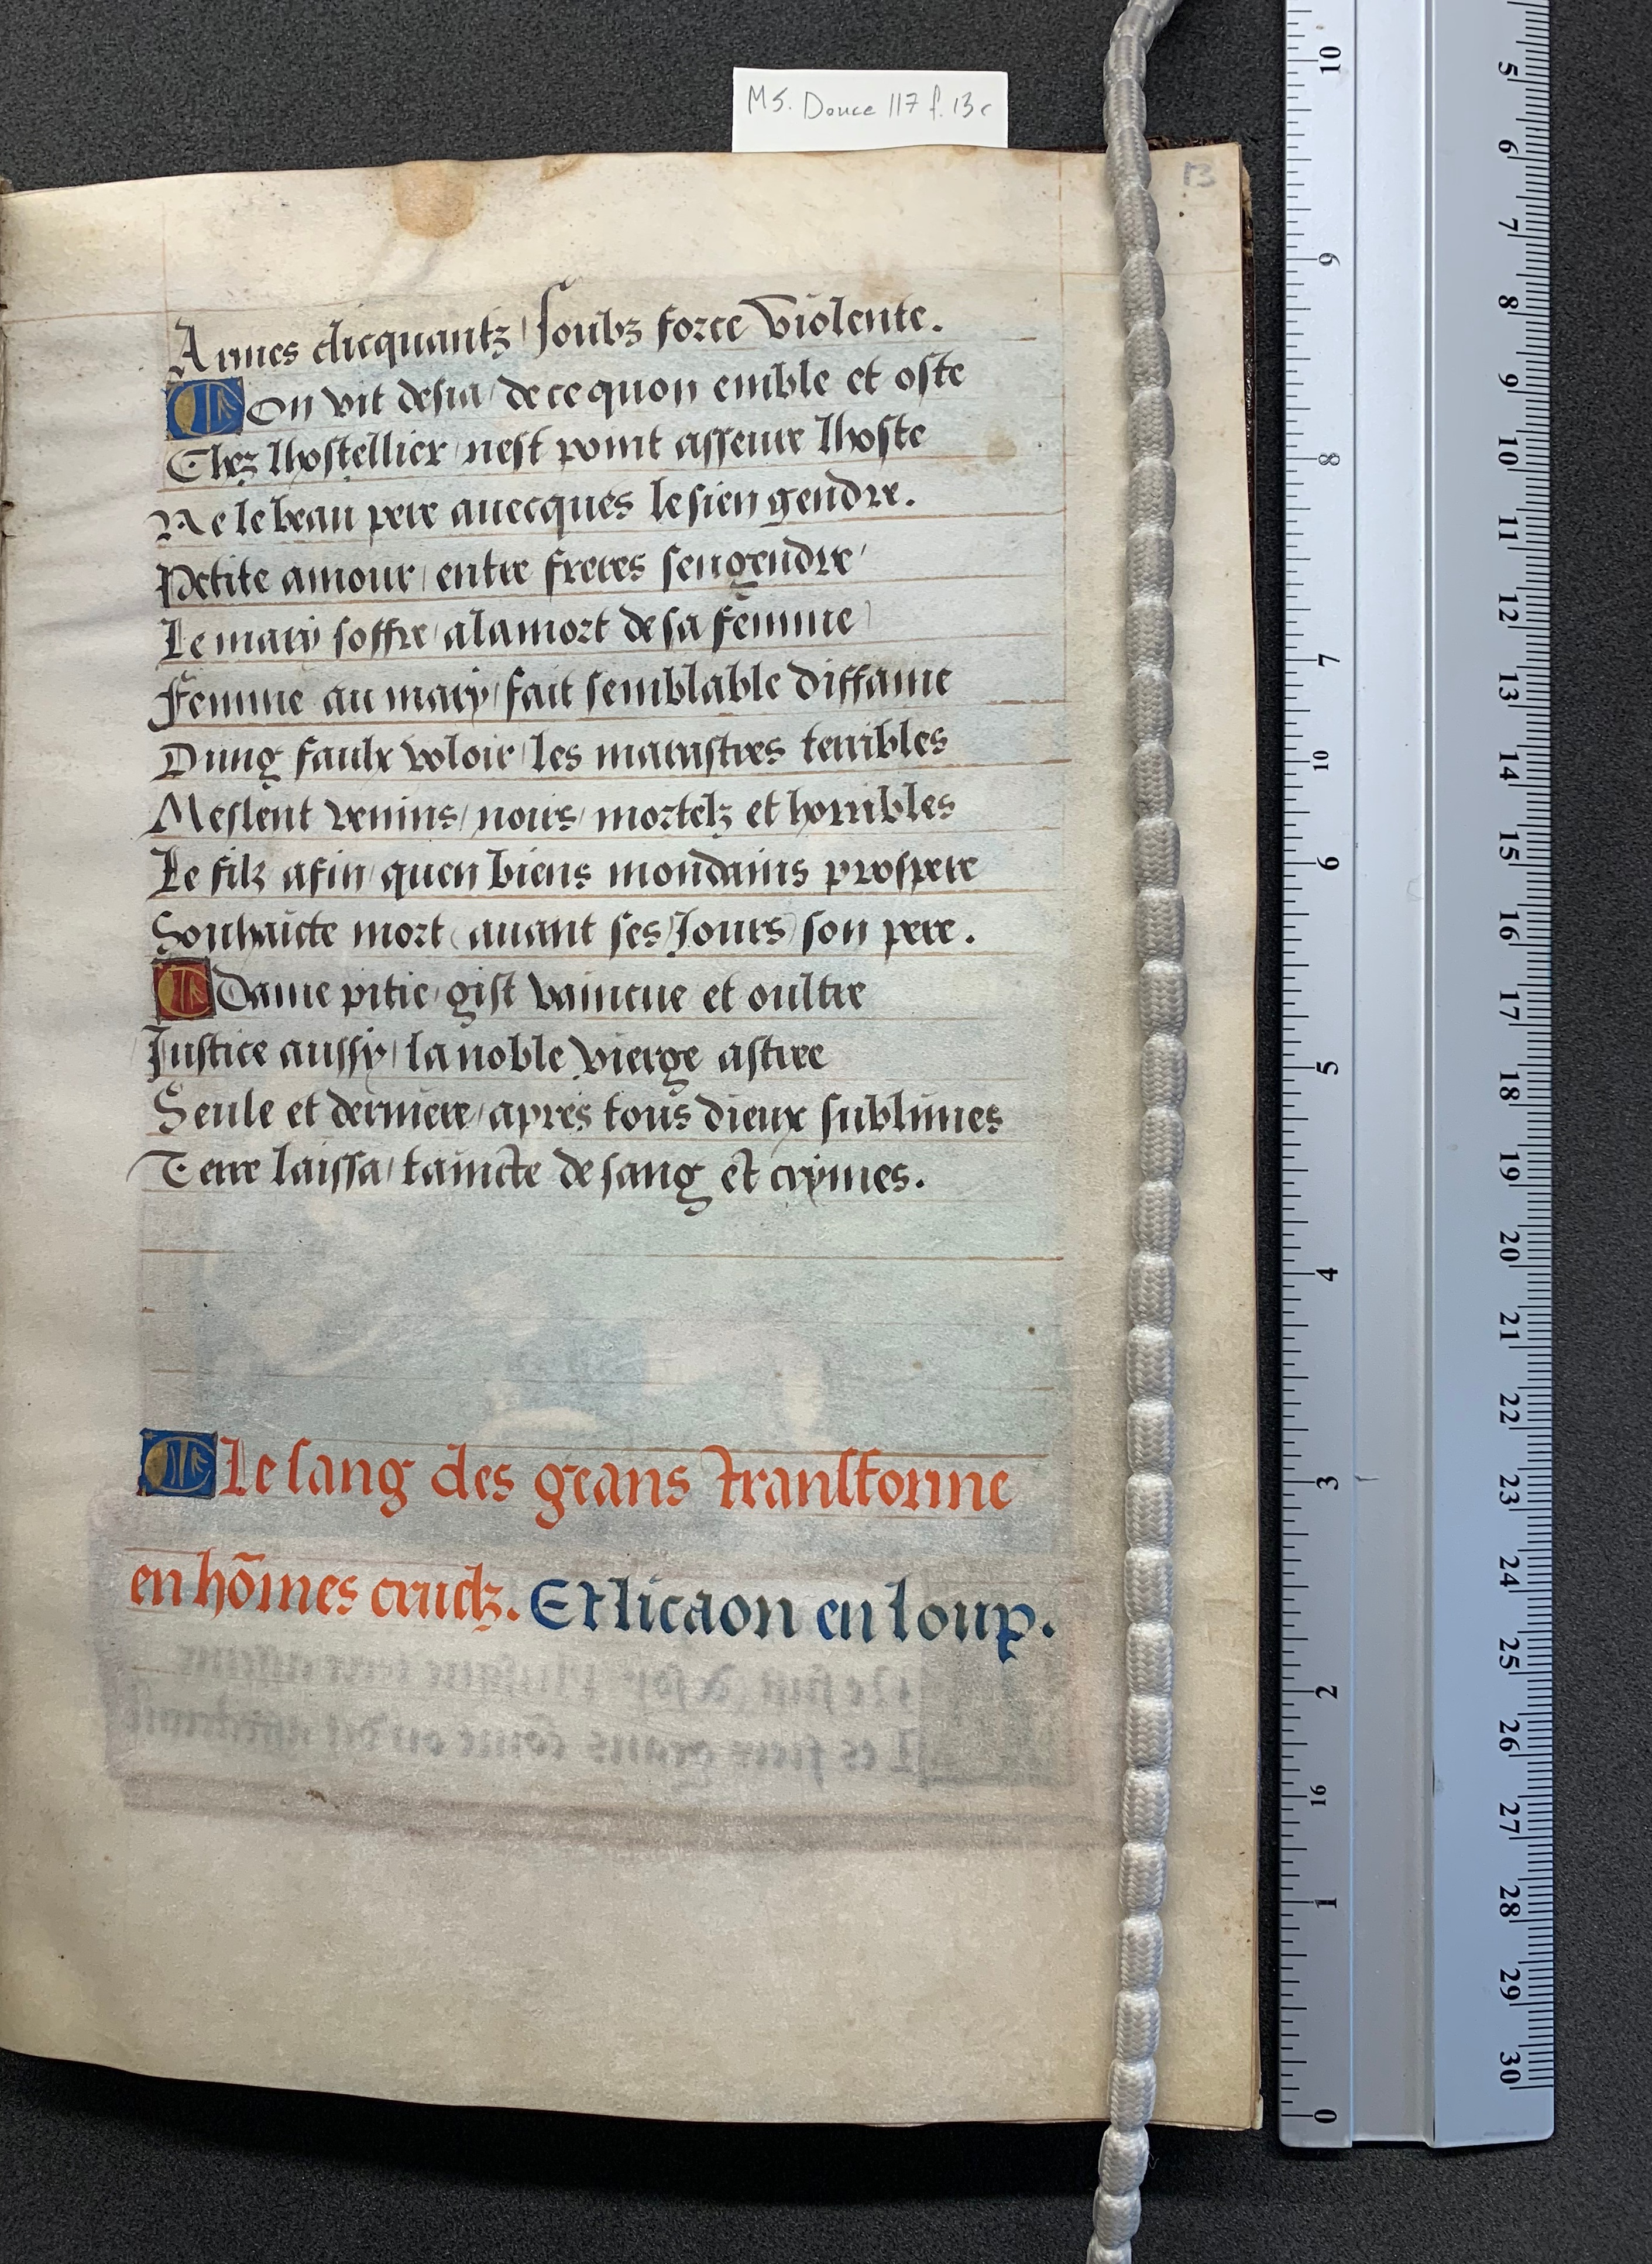 MS. Douce 117 f. 13r
13
Armes clicquantz / soubz force violente.
On vit desia / de ce quon emble et oste
Chez lhostellier / nest point asseure lhoste
Ne le beau pere auecques le sien gendre.
Petite amour / entre freres sengendre /
Le mary soffre / a la mort de sa femme /
Femme au mary / fait semblable diffame
Dung faulx voloir / les marastres terribles
Meslent venins / noirs / mortelz et horribles
Le filz afin / quen biens mondains prospere
Souhaicte mort / auant ses Jours / son pere.
Dame pitie / gist vaincue et oultre
Justice aussy / la noble vierge astree
Seule et derniere / apres tous dieux sublimes
Terre laissa / taincte de sang et crymes.
Le sang des geans transforme
en hõmes crudz. Et licaon en loup.